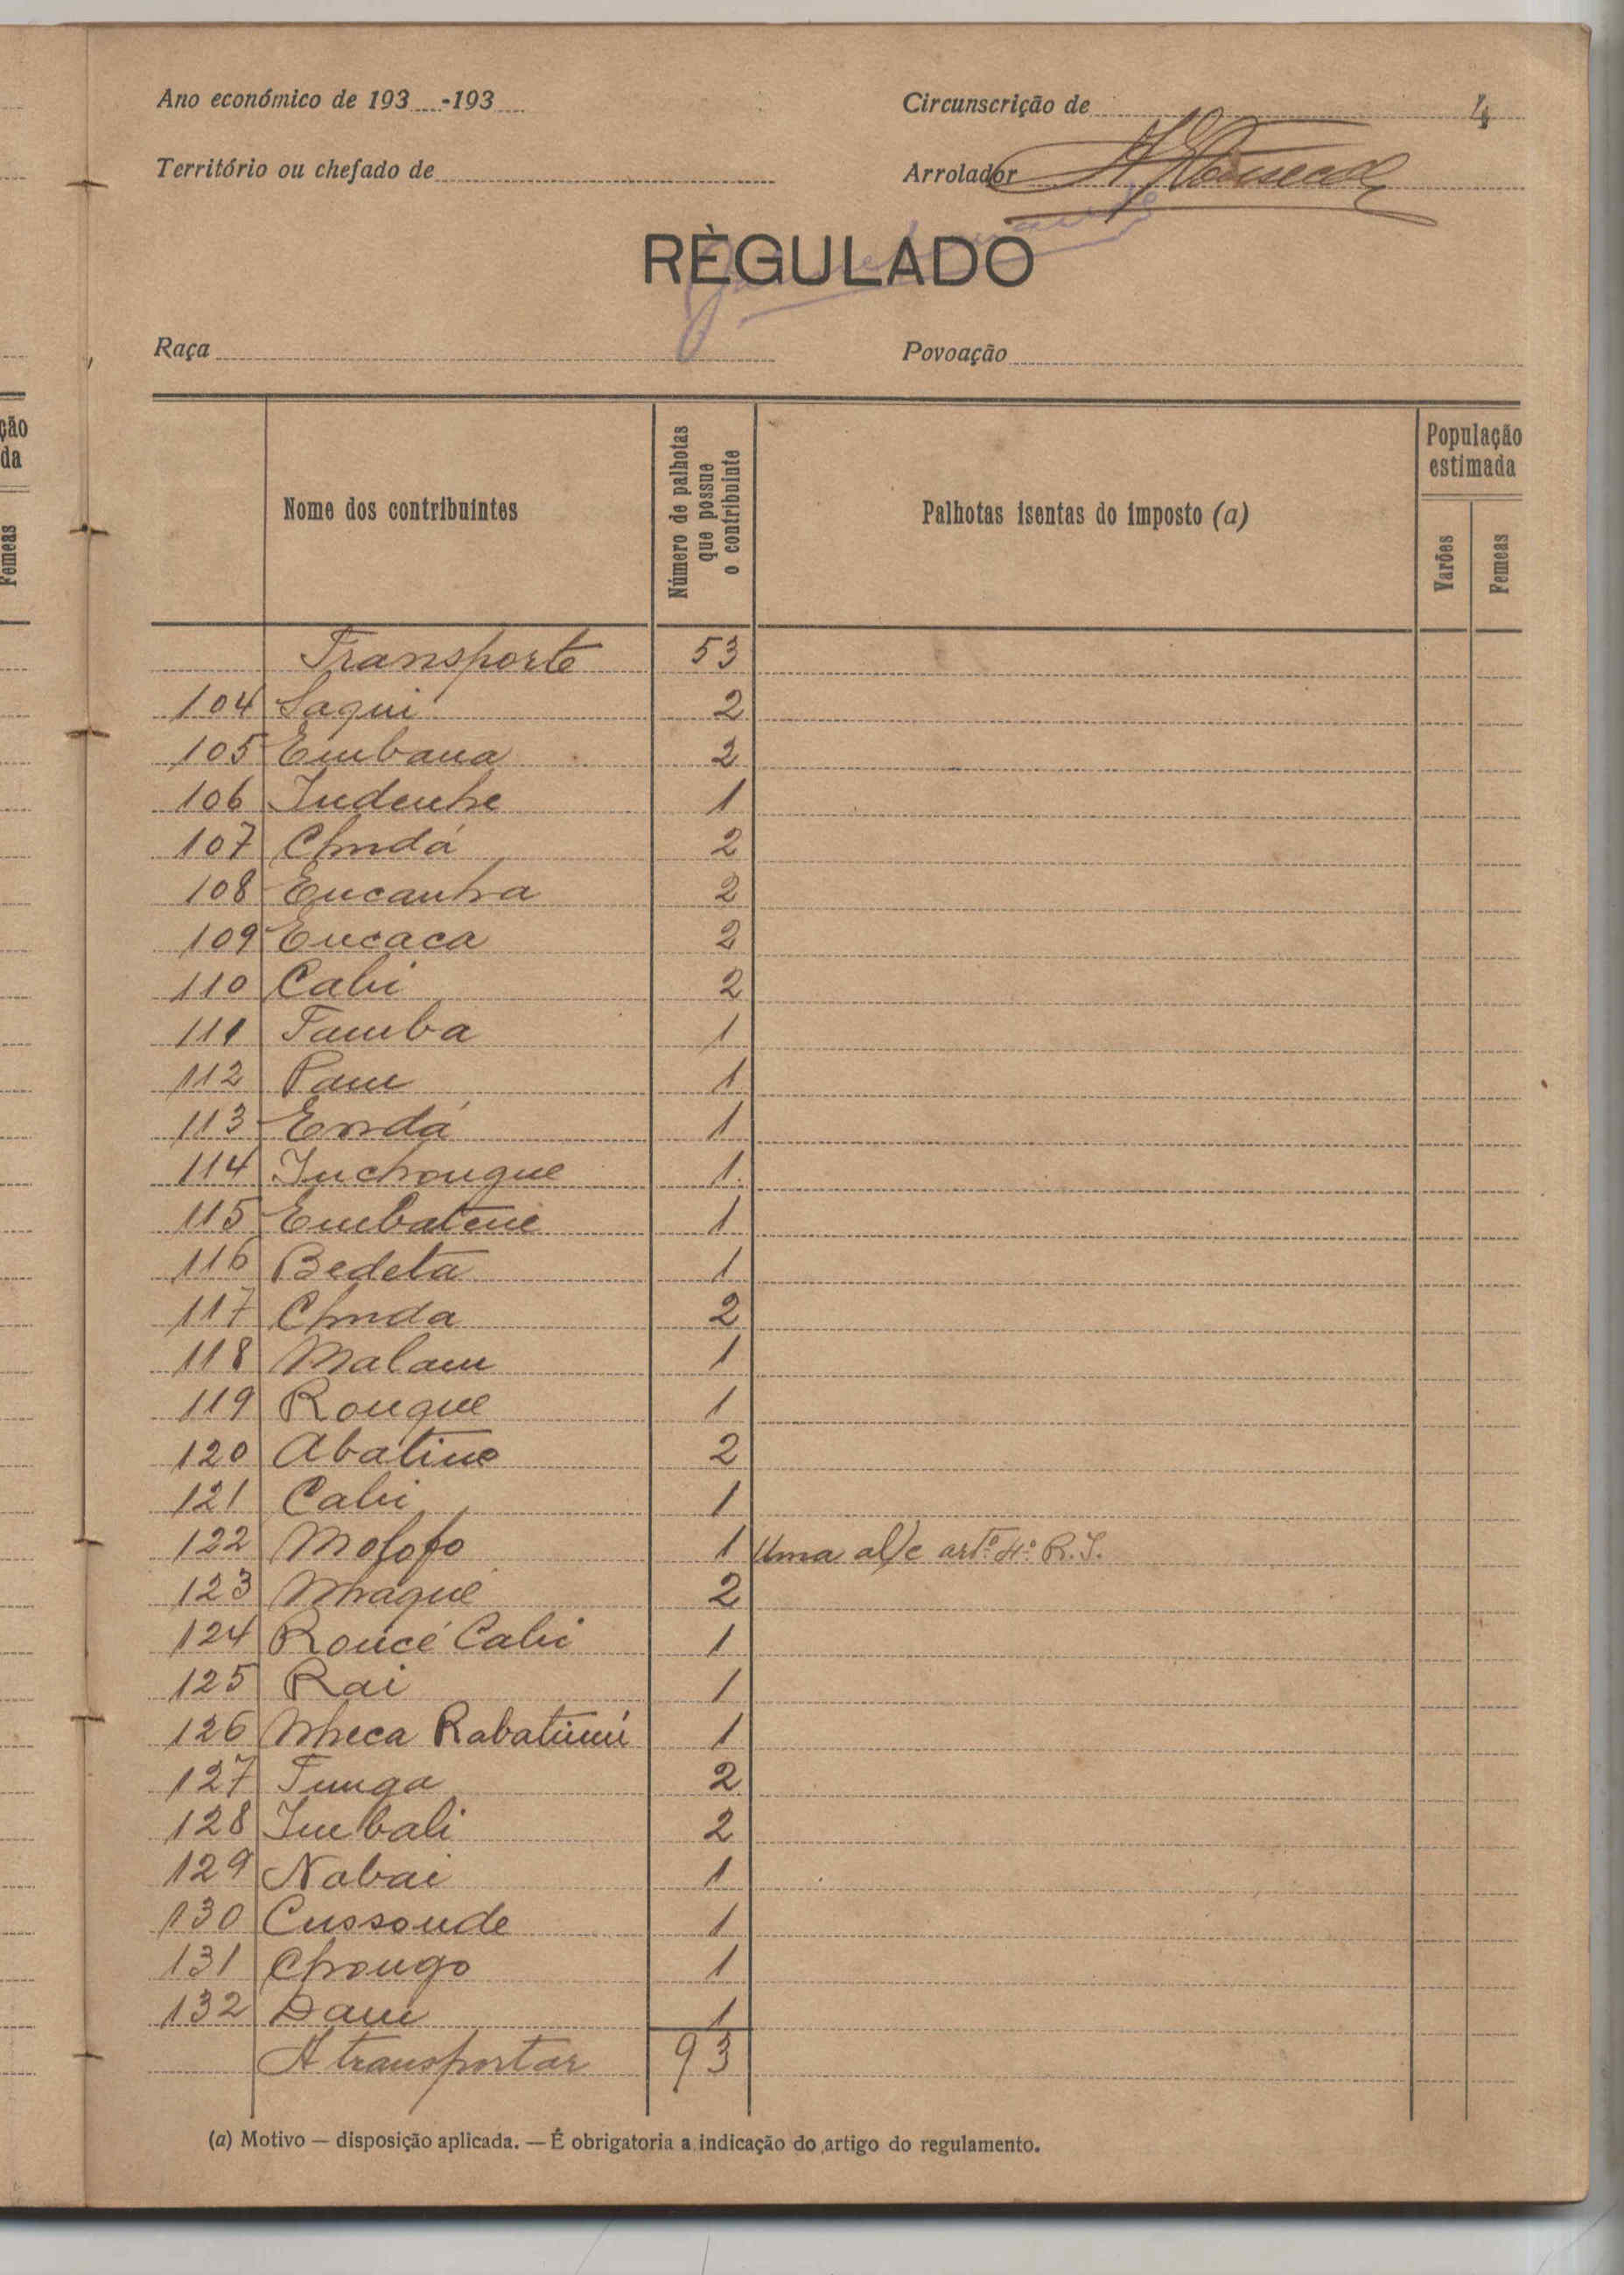 ção
da
Femeas
Ano económico de 193 -193
Circunscrição de 4
Território ou chefado de
Arrolador
REGULADO
Raça
Povoação
Nome dos contribuintes
Número de palhotas que possue o contribuinte
Palhotas isentas do imposto (a)
População estimada
Varões
Femeas
Transporte 53
104 Saqui 2
105 Embana 2
106 Indenhe 1
107 Chudá 2
108 Encanha 2
109 Encaca 2
110 Cabi 2
111 Tamba 1
112 Pam 1
113 Endá 1
114 Inchongue 1
115 Embatene 1
116 Bedeta 1
117 Chuda 2
118 Malam 1
119 Rongue 1
120 Abatino 2
121 Cabi 1
122 Molofo 1 Uma al/c artº 4º R.I.
123 Nhaqué 2
124 Roncé Cabi 1
125 Rai 1
126 Nheca 1
127 Tunga 2
128 Imbali 2
129 Nabai 1
130 Cussonde 1
131 Chongo 1
132 1
A transportar 93
(a) Motivo — disposição aplicada. — É obrigatoria a indicação do artigo do regulamento.